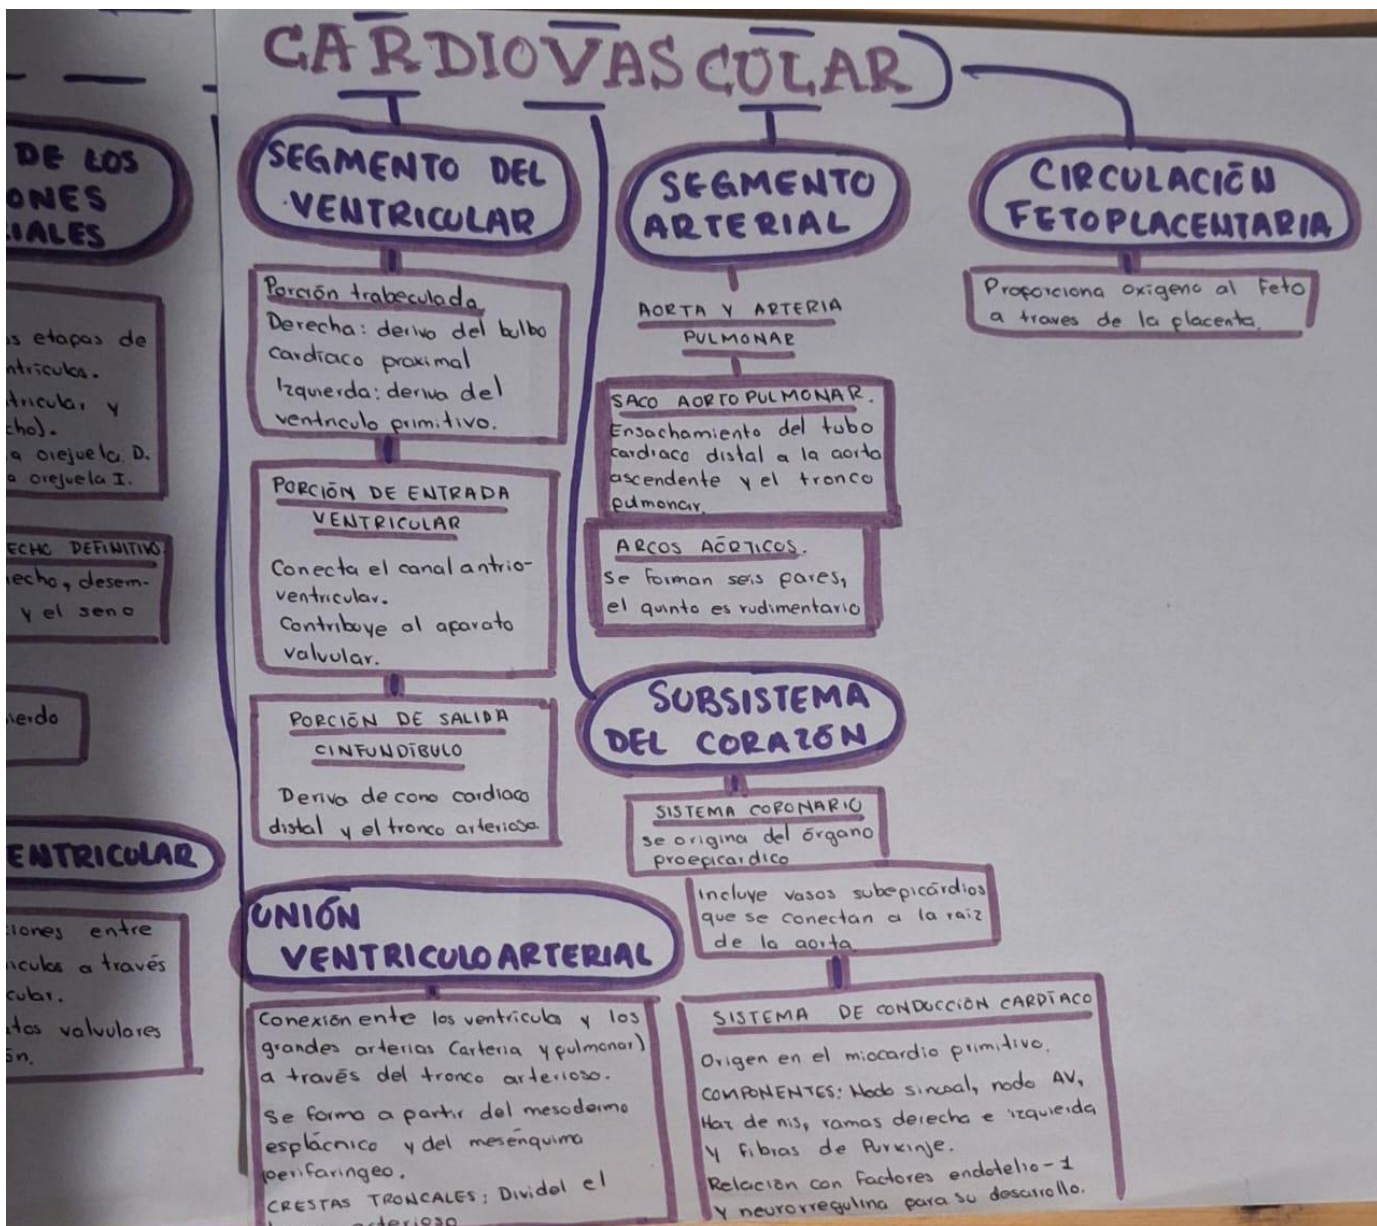 CARDIOVASCULAR
DE LOS
ONES
IALES
s etapas de
ntrículos.
tricular y
cho).
a orejuela D.
a orejuela I.
ECHO DEFINITIVO
echo, desem-
y el seno
ierdo
ENTRICULAR
iones entre
iculos a través
cular.
tos valvulares
ón.
SEGMENTO DEL
VENTRICULAR
Porción trabeculada
Derecha: derivo del bulbo
cardíaco proximal
Izquierda: deriva del
ventriculo primitivo.
PORCIÓN DE ENTRADA
VENTRICULAR
Conecta el canal antrio-
ventricular.
Contribuye al aparato
valvular.
PORCIÓN DE SALIDA
CINFUNDÍBULO
Deriva de cono cardiaco
distal y el tronco arterioso.
UNIÓN
VENTRICULOARTERIAL
Conexión ente los ventrículos y los
grandes arterias Carteria y pulmonar)
a través del tronco arterioso.
Se forma a partir del mesodermo
esplácnico y del mesénquima
perifaringeo.
CRESTAS TRONCALES: Dividel el
arterioso
SEGMENTO
ARTERIAL
AORTA Y ARTERIA
PULMONAR
SACO AORTOPULMONAR.
Ensachamiento del tubo
cardiaco distal a la aorta
ascendente y el tronco
pulmonar.
ARCOS AÓRTICOS.
Se forman seis pares,
el quinto es rudimentario
SUBSISTEMA
DEL CORAZÓN
SISTEMA CORONARIO
se origina del órgano
proepicardico
Incluye vasos subepicárdios
que se conectan a la raiz
de la aorta
SISTEMA DE CONDUCCIÓN CARDÍACO
Origen en el miocardio primitivo.
COMPONENTES: Nodo sinoal, nodo AV,
Haz de nis, ramas derecha e izquierda
y fibras de Purkinje.
Relación con factores endotelio-1
y neurorregulina para su desarrollo.
CIRCULACIÓN
FETOPLACENTARIA
Proporciona oxigeno al Feto
a traves de la placenta.